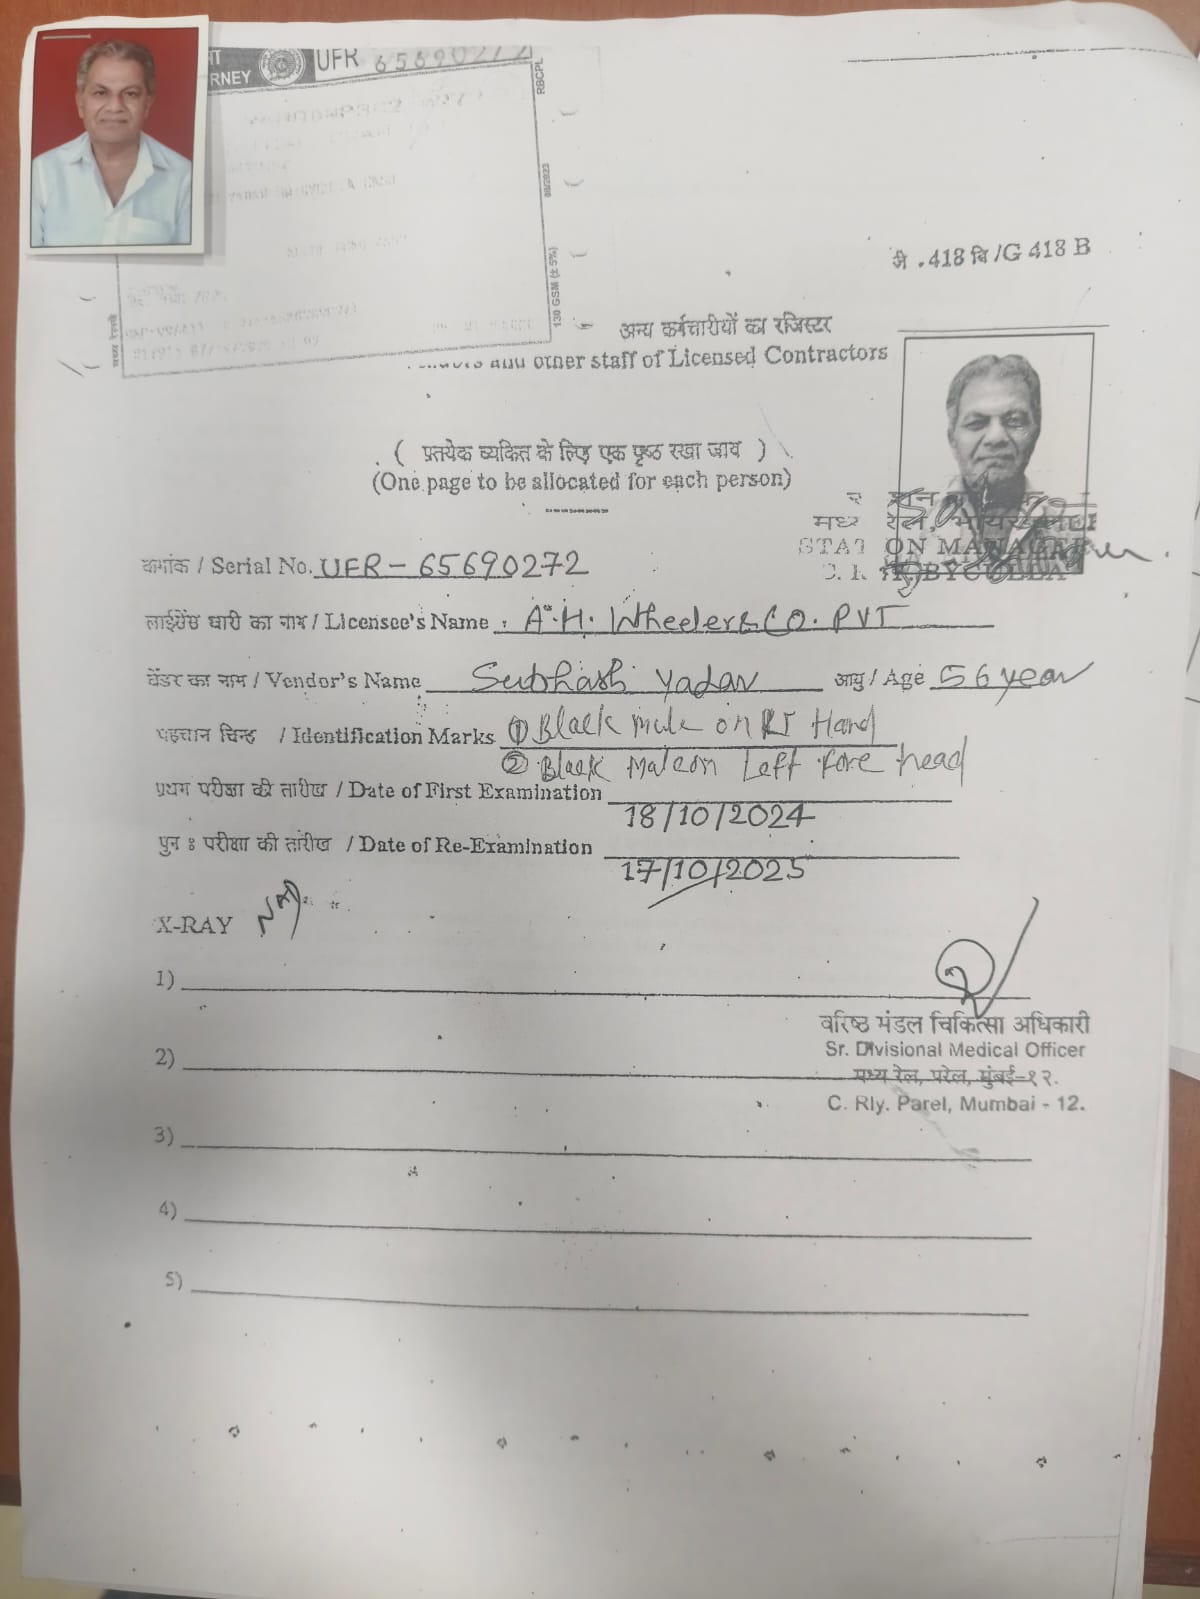 RNEY UFR 65690272
RBCPL
08/2023
130 GSM (± 5%)
जी .418 बि /G 418 B
अन्य कर्मचारीयों का रजिस्टर
and other staff of Licensed Contractors
( प्रत्येक व्यकित के लिए एक पृष्ठ रखा जाव )
(One page to be allocated for each person)
मध्य रेल,
STATION MANAGER
C. R. BYCULLA
कमांक / Serial No. UFR - 65690272
लाईसेंस धारी का नाम / Licensee's Name : A.H. Wheeler & CO. PVT
वेंडर का नाम / Vendor's Name Subhash Yadav आयु / Age 56 year
पहचान चिन्ह / Identification Marks ① Black mule on RT Hand
② Black Maleon Left fore head
प्रथम परीक्षा की तारीख / Date of First Examination
18/10/2024
पुन : परीक्षा की तारीख / Date of Re-Examination
17/10/2025
X-RAY
1)
वरिष्ठ मंडल चिकित्सा अधिकारी
Sr. Divisional Medical Officer
2)
मध्य रेल, परेल, मुंबई-१२.
C. Rly. Parel, Mumbai - 12.
3)
4)
5)